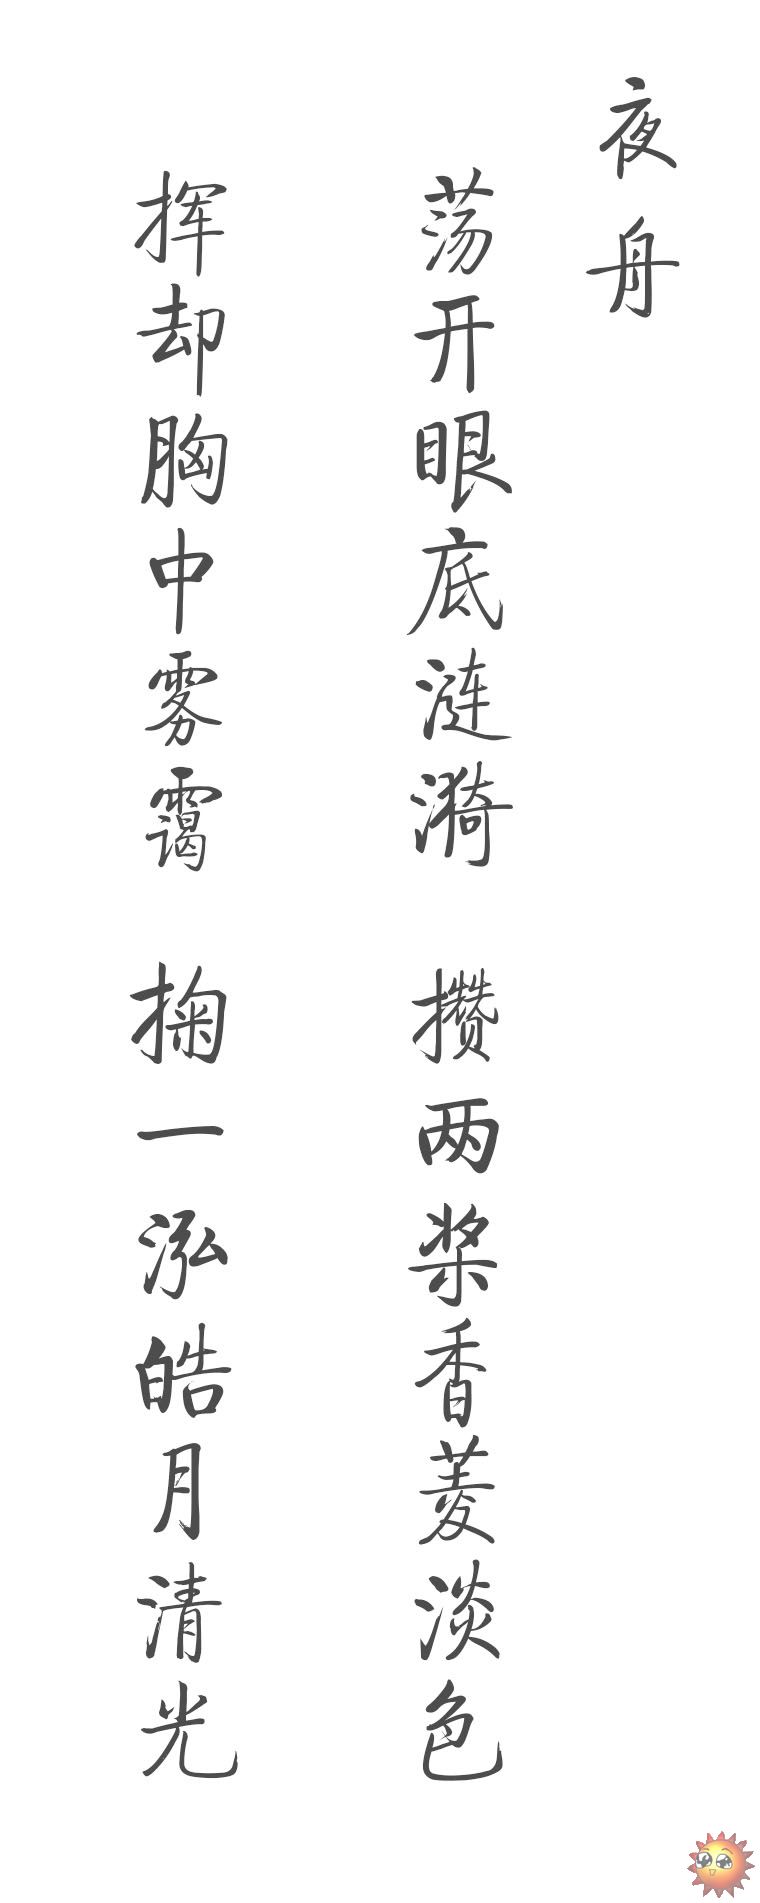 夜舟
荡开眼底涟漪 攒两桨香菱淡色
挥却胸中雾霭 掬一泓皓月清光